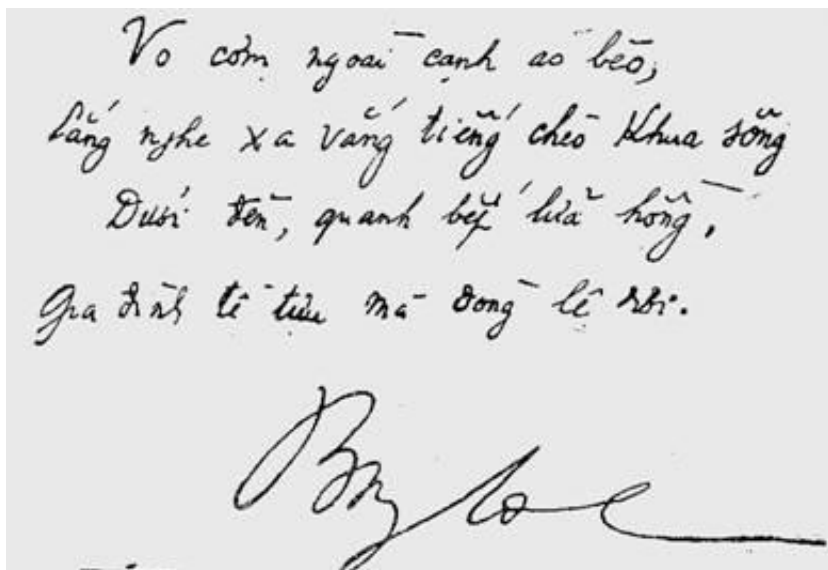 Vo cơm ngoài cạnh ao bèo,
Lắng nghe xa vắng tiếng chèo khua sông
Dưới đèn, quanh bếp lửa hồng,
Gia đình tề tựu mà dong lê rồi.